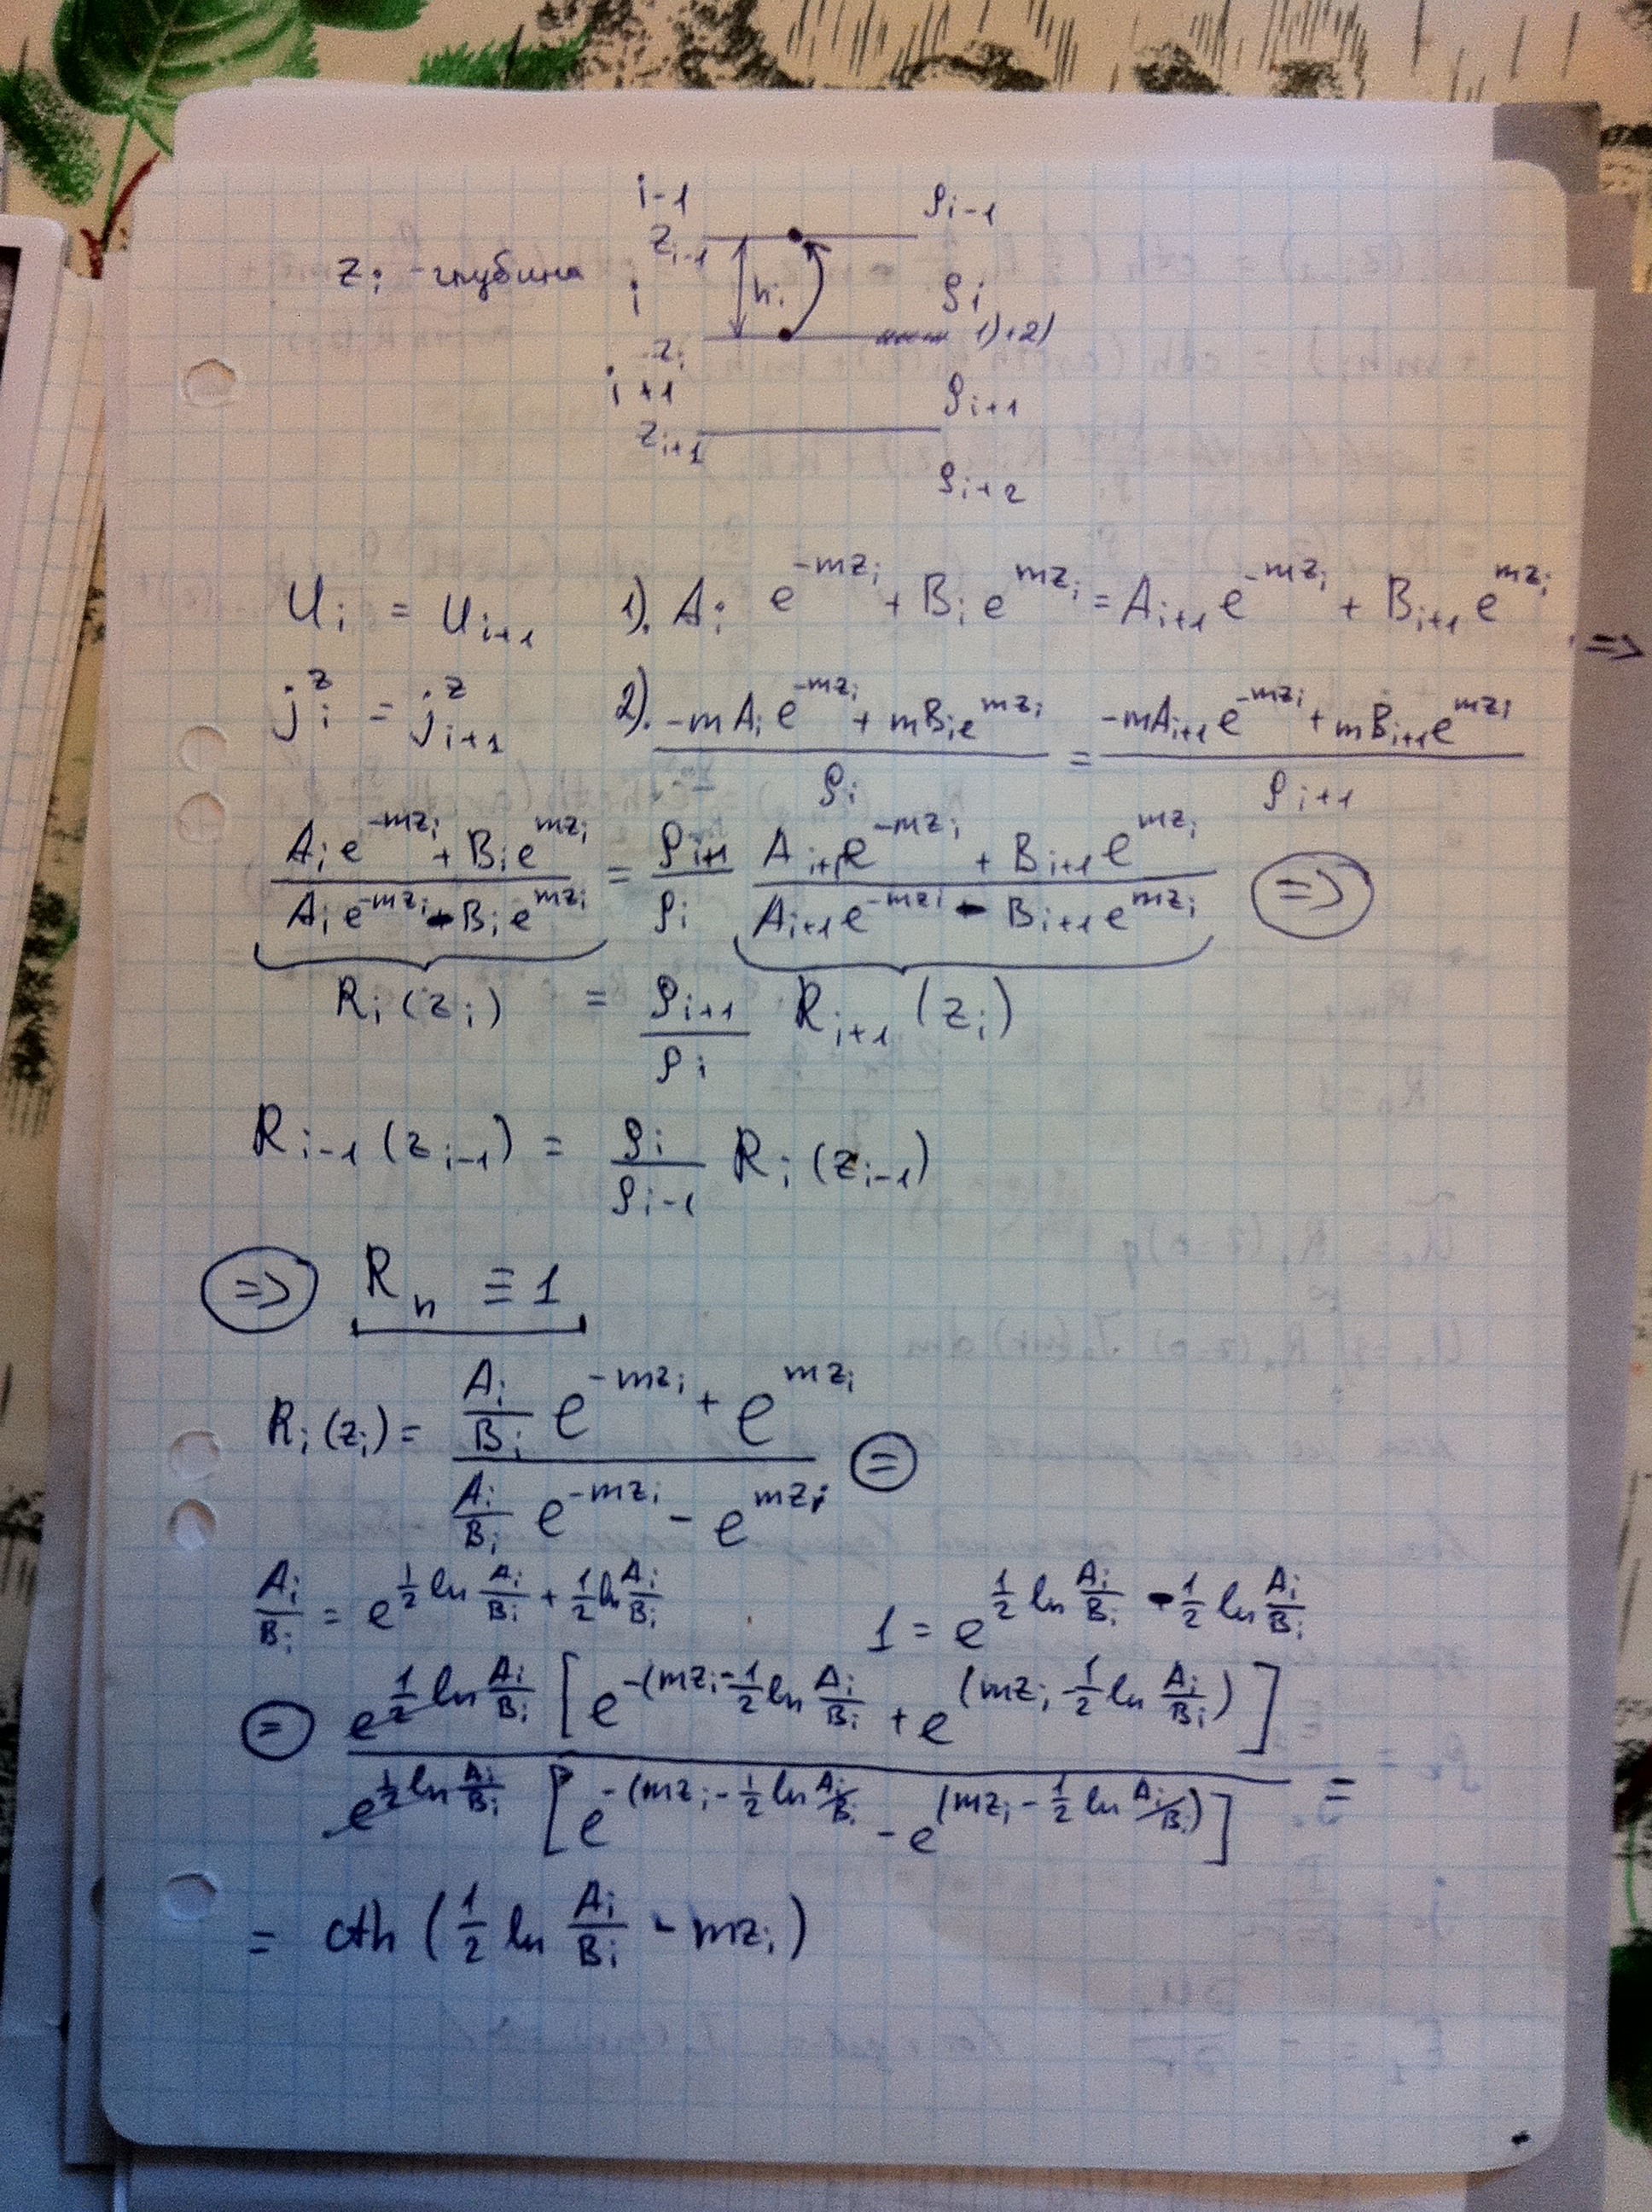 i-1 ρ_{i-1}
z_{i-1}
z_i - глубина i h_i ρ_i
z_i 1)+2)
i+1 ρ_{i+1}
z_{i+1}
ρ_{i+2}
U_i = U_{i+1} 1). A_i e^{-mz_i} + B_i e^{mz_i} = A_{i+1} e^{-mz_i} + B_{i+1} e^{mz_i} =>
j_i^z = j_{i+1}^z 2). \frac{-mA_i e^{-mz_i} + mB_i e^{mz_i}}{ρ_i} = \frac{-mA_{i+1} e^{-mz_i} + mB_{i+1} e^{mz_i}}{ρ_{i+1}}
\frac{A_i e^{-mz_i} + B_i e^{mz_i}}{A_i e^{-mz_i} - B_i e^{mz_i}} = \frac{ρ_{i+1}}{ρ_i} \frac{A_{i+1} e^{-mz_i} + B_{i+1} e^{mz_i}}{A_{i+1} e^{-mz_i} - B_{i+1} e^{mz_i}} =>
R_i(z_i) = \frac{ρ_{i+1}}{ρ_i} R_{i+1}(z_i)
R_{i-1}(z_{i-1}) = \frac{ρ_i}{ρ_{i-1}} R_i(z_{i-1})
=> R_n ≡ 1
R_i(z_i) = \frac{\frac{A_i}{B_i} e^{-mz_i} + e^{mz_i}}{\frac{A_i}{B_i} e^{-mz_i} - e^{mz_i}} =
\frac{A_i}{B_i} = e^{\frac{1}{2} ln \frac{A_i}{B_i} + \frac{1}{2} ln \frac{A_i}{B_i}} 1 = e^{\frac{1}{2} ln \frac{A_i}{B_i} - \frac{1}{2} ln \frac{A_i}{B_i}}
= \frac{e^{\frac{1}{2} ln \frac{A_i}{B_i}} [e^{-(mz_i - \frac{1}{2} ln \frac{A_i}{B_i}} + e^{(mz_i - \frac{1}{2} ln \frac{A_i}{B_i})}]}{e^{\frac{1}{2} ln \frac{A_i}{B_i}} [e^{-(mz_i - \frac{1}{2} ln \frac{A_i}{B_i}} - e^{(mz_i - \frac{1}{2} ln \frac{A_i}{B_i})}]} =
= cth (\frac{1}{2} ln \frac{A_i}{B_i} - mz_i)